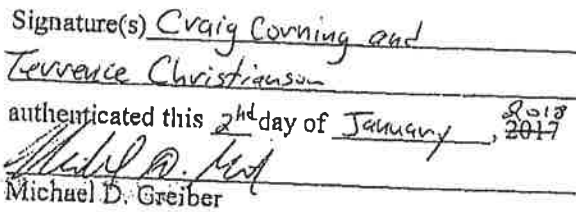 Signature(s) Craig Corning and
Terrence Christianson
authenticated this 2nd day of January, 2018
2017
Michael D. Greiber